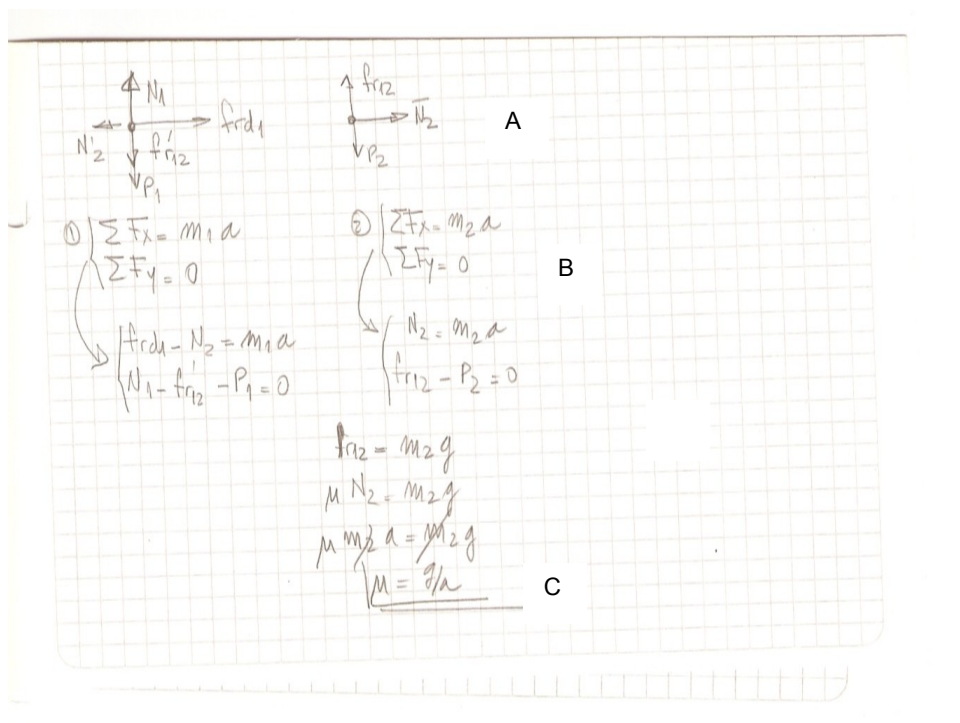 N₁
frd₁
N'₂
f'r₁₂
P₁
fr₁₂
N̅₂
P₂
A
① ΣFx = m₁a
ΣFy = 0
② ΣFx = m₂a
ΣFy = 0
B
frd₁ - N₂ = m₁a
N₁ - f'r₁₂ - P₁ = 0
N₂ = m₂a
fr₁₂ - P₂ = 0
fr₁₂ = m₂g
μ N₂ = m₂g
μ m₂ a = m₂g
μ = g/a
C